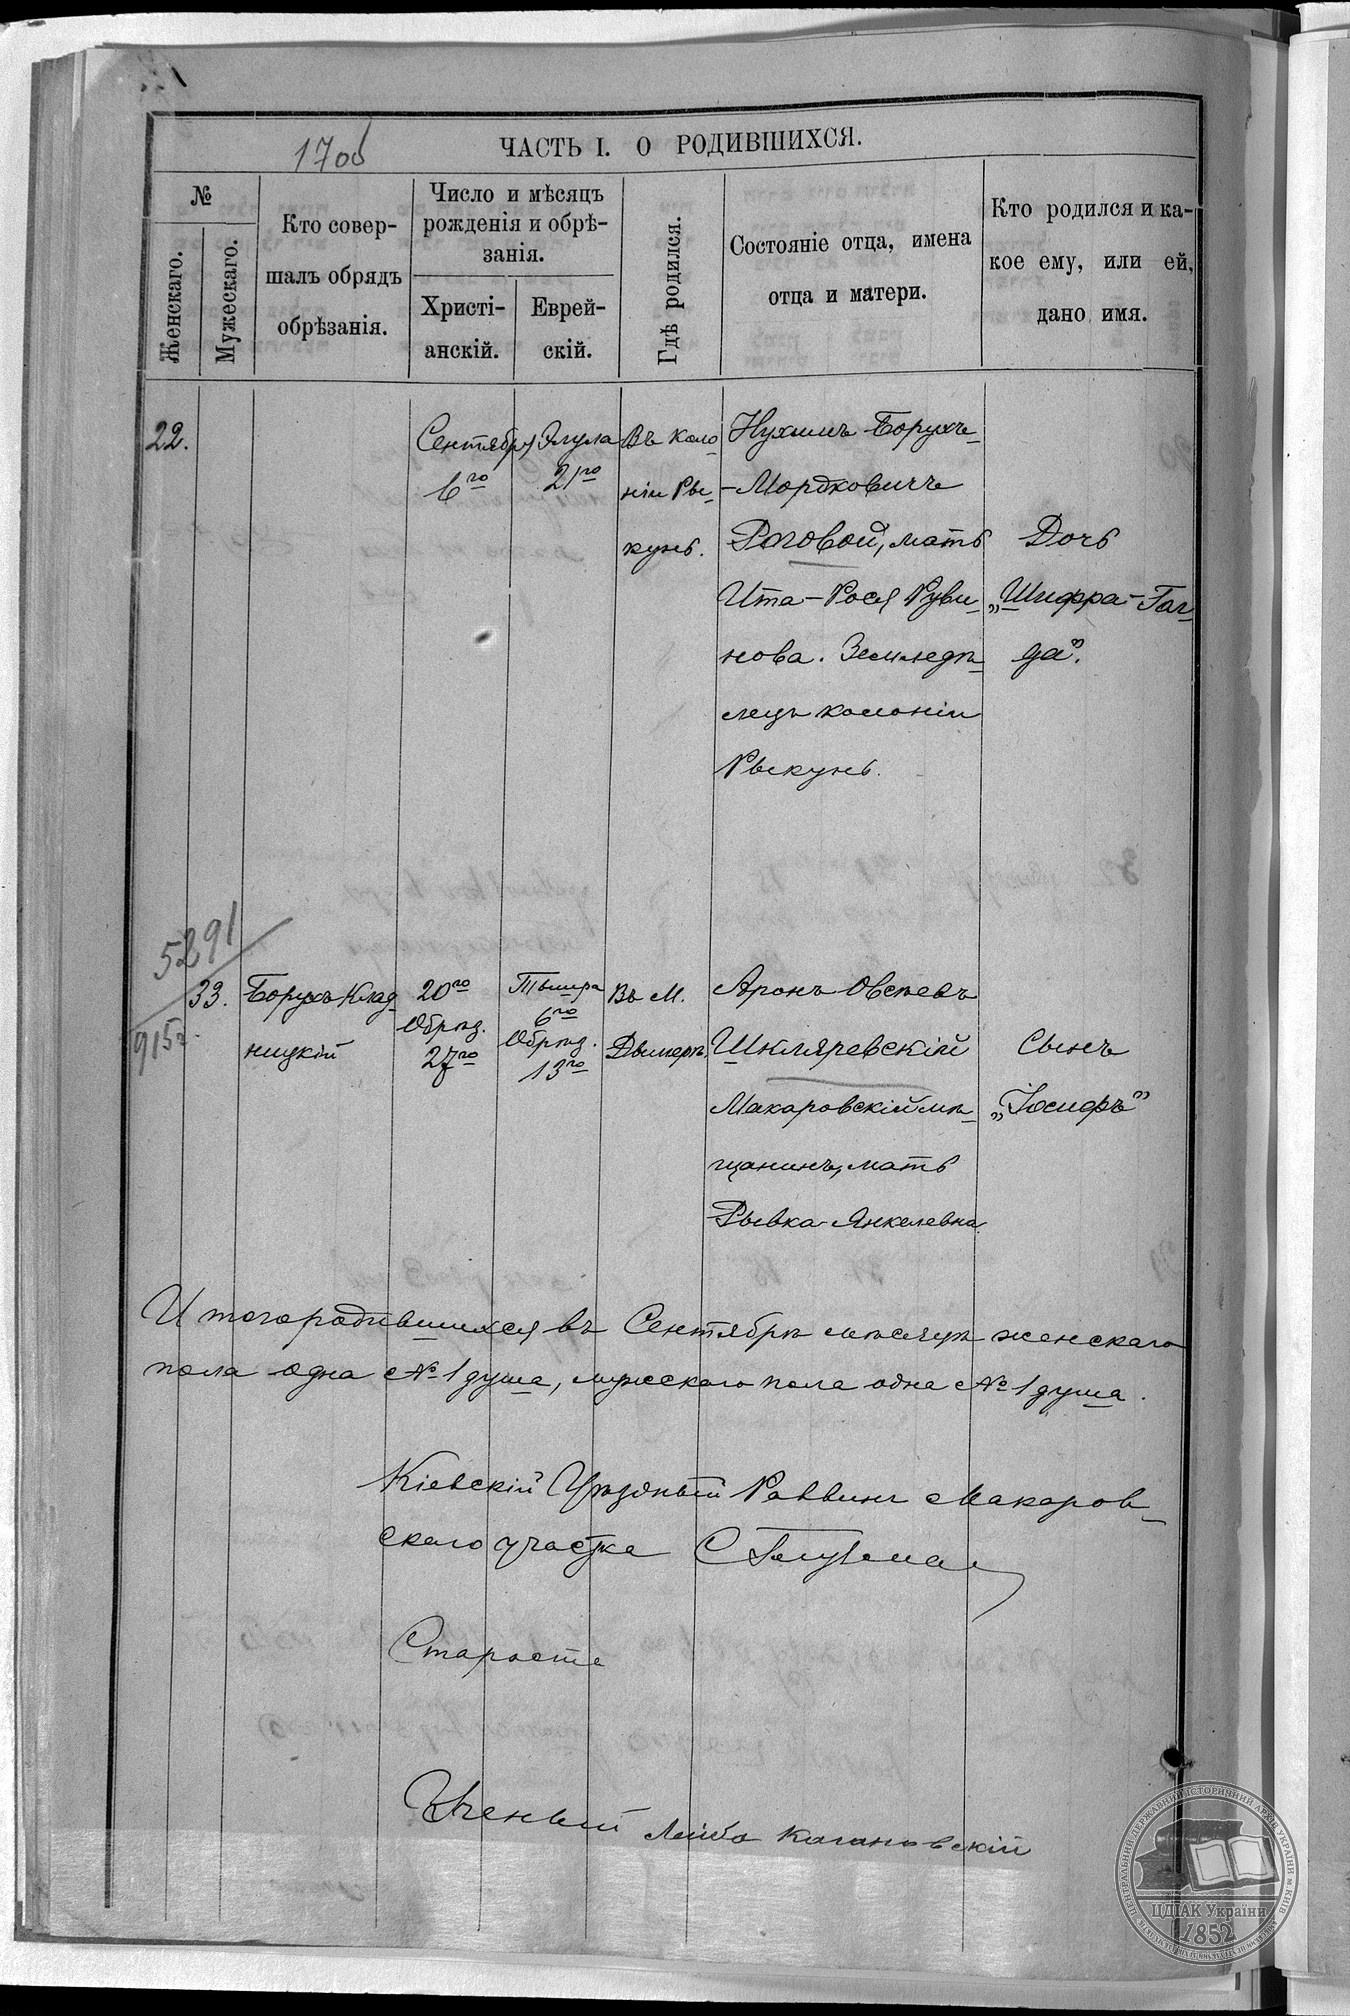 17об
ЧАСТЬ I. О РОДИВШИХСЯ.
№
Женскаго.
Мужескаго.
Кто совер-
шалъ обрядъ
обрѣзанія.
Число и мѣсяцъ
рожденія и обрѣ-
занія.
Христі-
анскій.
Еврей-
скій.
Гдѣ родился.
Состояніе отца, имена
отца и матери.
Кто родился и ка-
кое ему, или ей,
дано имя.
22.
Сентября
6го
Элула
21го
Въ коло-
ніи Ры-
кунь.
Нухимъ Борухъ-
-Мордковичъ
Роговой, мать
Ита-Рося Руви-
нова. Земледѣ-
лецъ колоніи
Рыкунь.
Дочь
„Шифра-Гол-
да".
5291
915г.
33.
Борухъ Клад-
ницкій
20го
Обрѣз.
27го
Тышра
6го
Обрѣз.
13го
Въ М.
Дымерѣ
Аронъ Овсѣевъ
Шкляревскій
Макаровскій мѣ-
щанинъ, мать
Рывка-Янкелевна.
Сынъ
„Іосифъ"
Итого родившихся въ Сентябрѣ мѣсяцѣ женскаго
пола одна №1 душа, мужескаго пола одна №1 душа.
Кіевскій Уѣздный Раввинъ Макаров-
скаго участка
Староста
Ученый Лейба Кагановскій
ЦЕНТРАЛЬНИЙ ДЕРЖАВНИЙ ІСТОРИЧНИЙ АРХІВ УКРАЇНИ м. КИЇВ
ЦДІАК України
1852